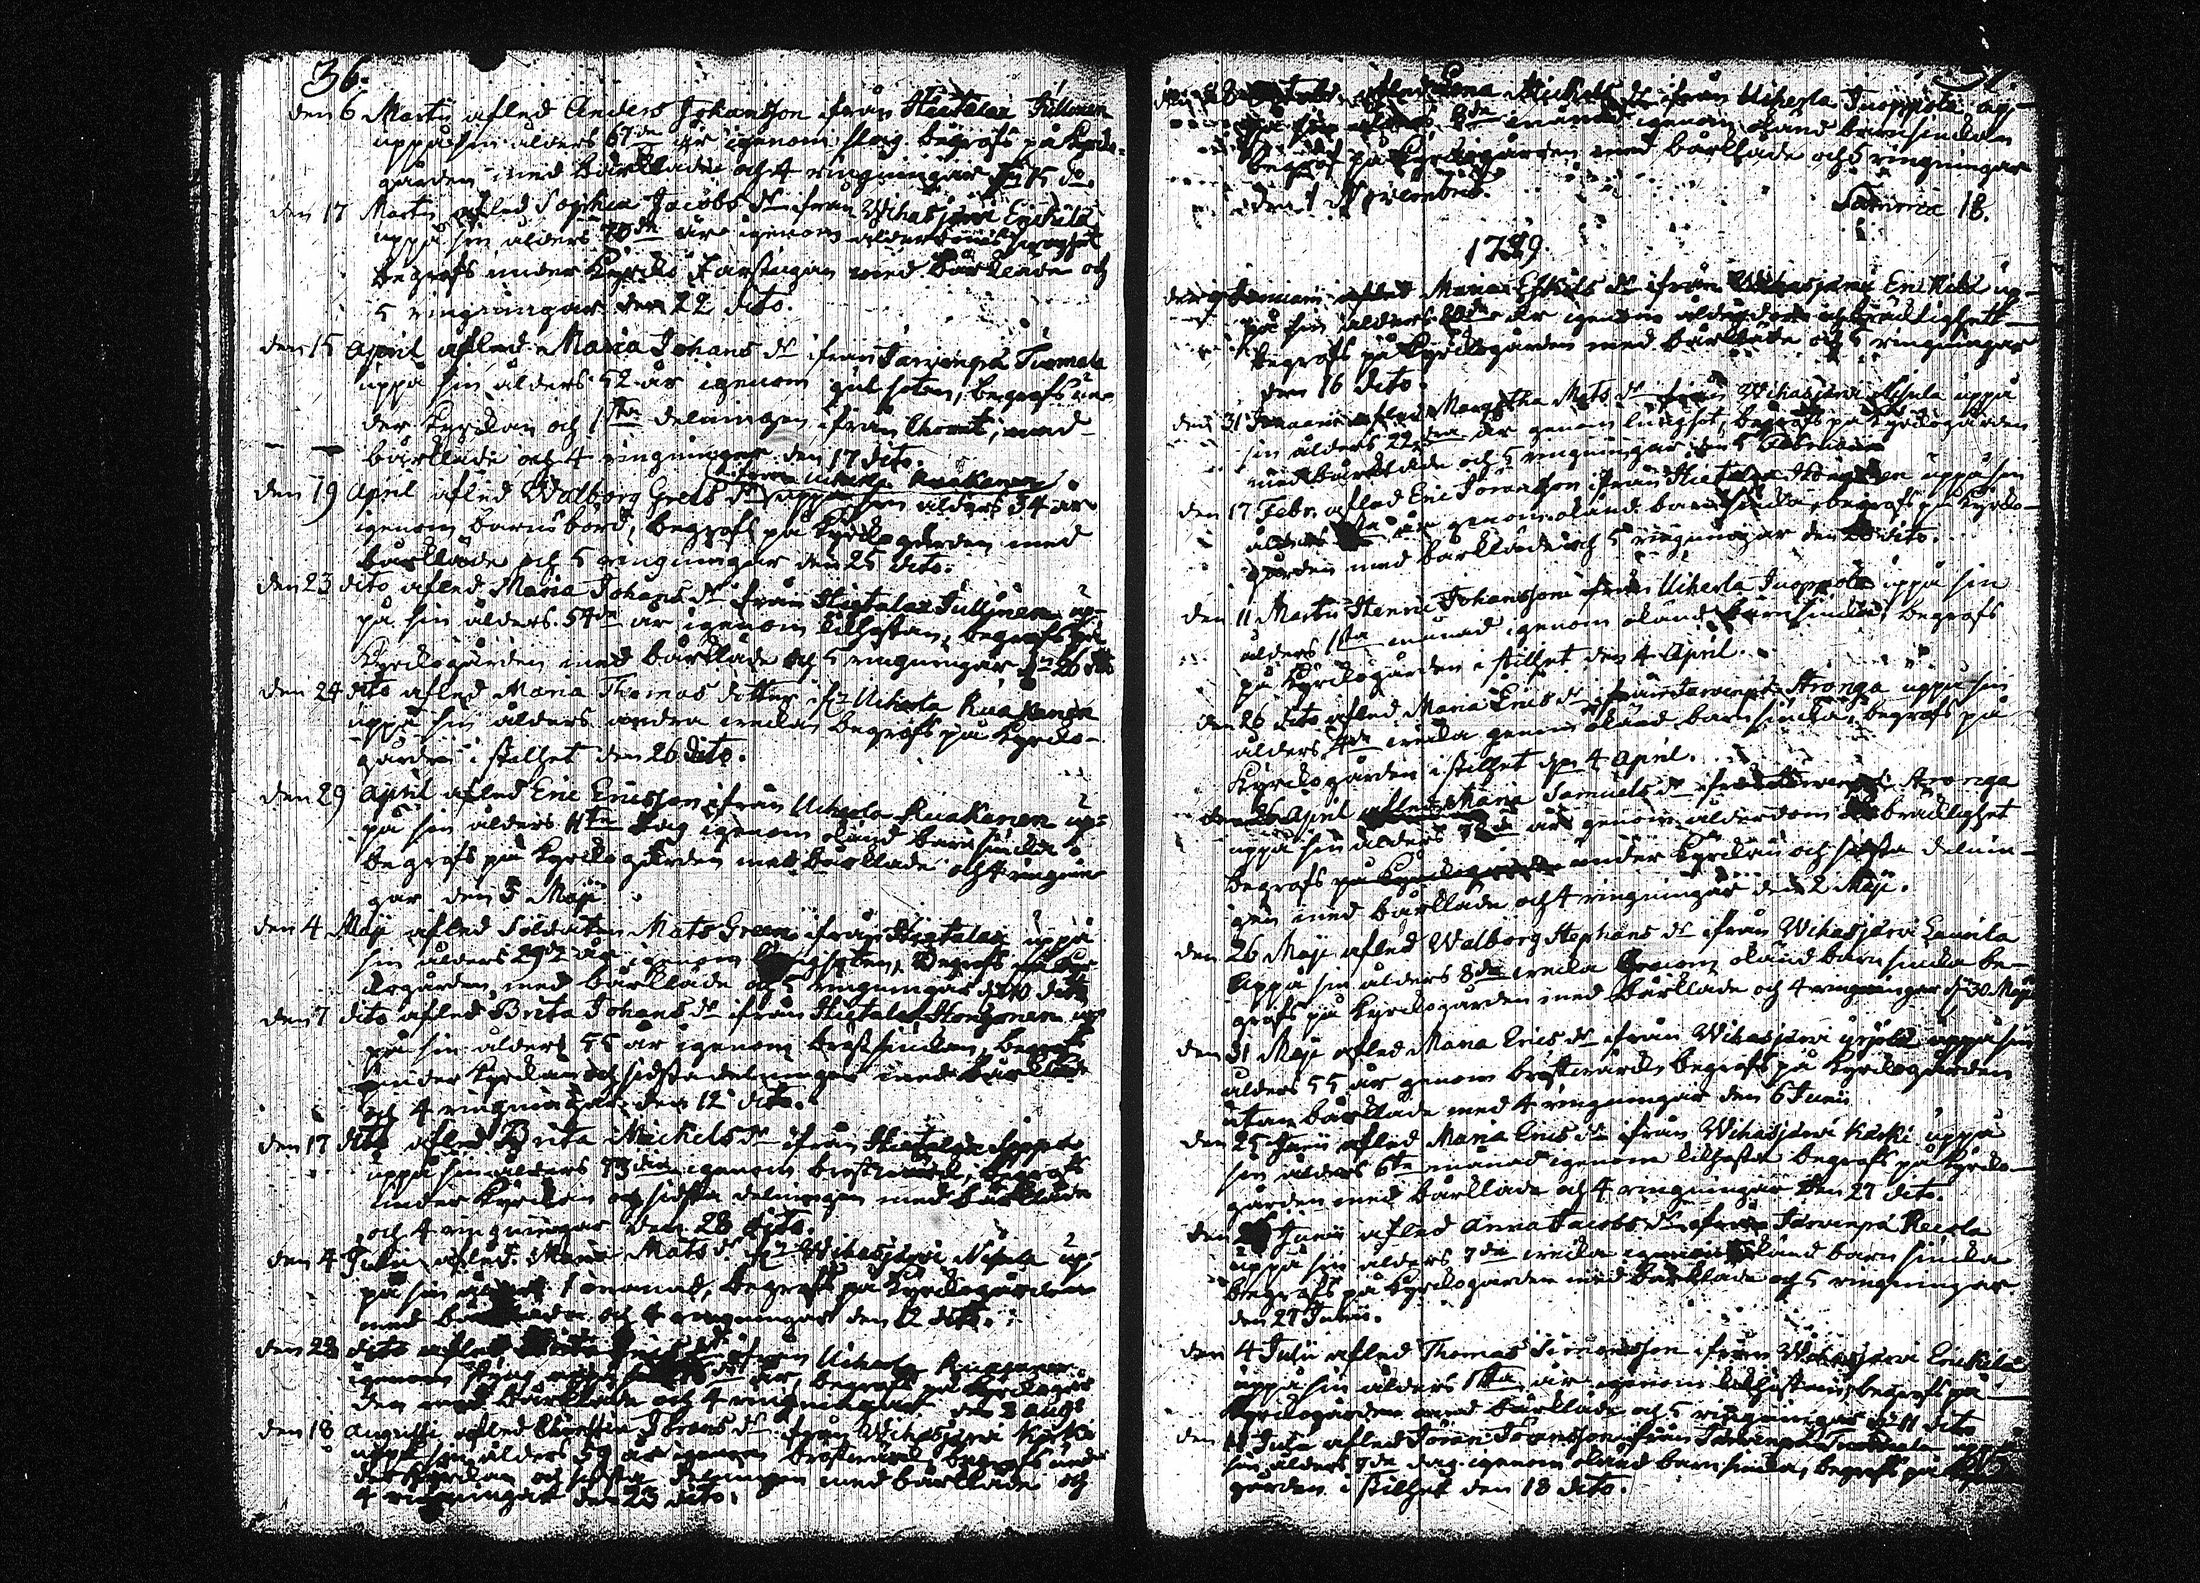 36.
den 6 Martii afled Anders Johansson ifrån Hietalax Jullinen
uppå sin ålders 67de år igenom slag begrofs på Kyrko-
gården med bårklade och 4 ringningar
den 17 Martii afled Sophia Jacobs dr ifrån Wihasjärvi Erickilä
uppå sin ålders 70de år igenom
begrofs under Kyrko Farstugan med bårklade och
5 ringningar den 22 dito.
den 15 April afled Maria Johans dr ifrån Tarvenpä Tuomala
uppå sin ålders 52 år igenom gulsoten, begrofs un-
der Kyrckan och 1sta delningen ifrån Choret, med
bårklade och 4 ringningar den 17 dito.
ifrån Uiherla Ruakanen
den 19 April afled Walborg Grels dr uppå sin ålders 34 år
igenom barnsbörd, begrofs på Kyrkogården med
bårkläde och 5 ringningar den 25 dito.
den 23 dito afled Maria Johans dr ifrån Hietalax Jullinen up-
på sin ålders 54de år igenom begrofs på
Kyrkogården med bårklade och 5 ringningar dn 26
den 24 dito afled Maria Thomas dotter fr Uiherla Ruakanen
uppå sin ålders andra wecka begrofs på Kyrko-
gården i stillhet den 26 dito.
den 29 April afled Eric Ericsson ifrån Uiherla Ruakanen up-
på sin ålders 11te dag igenom okänd barnsiucka
begrofs på Kyrkogården med bårklade och 4 ringnin-
gar den 3 Maji
den 4 Maji afled Soldaten Mats Green ifrån Hietalax uppå
sin ålders 29de år igenom begrofs på Kyr-
kogården med bårklade och 5 ringningar d. 10 dito
den 7 dito afled Brita Johans dr ifrån Hietalax up-
på sin ålders 55 år igenom bröstsiuckan, begrofs
under Kyrckan och sidsta delningen med bårklade
och 4 ringningar den 12 dito.
den 17 dito afled Brita Michels dr ifrån Hietalax
uppå sin ålders 73die igenom bröstwärk, begrofs
under Kyrckan och sidsta delningen med bårklade
och 4 ringningar den 28 dito.
den 4 afled Maria Mats dr fr Wihasjärvi Nihula up-
på sin ålders 1 månad, begrofs på Kyrkogården
med och 4 ringningar den 12 dito.
den 28 dito afled ifrån Uiherla Ruakanen
igenom uppå år, begrofs på Kyrkogår-
den med bårklade och 4 ringningar den 2 Augs
den 18 Augusti afled Christin Jörans dr ifrån Wihasjärvi Kärki
uppå sin ålders 59 år igenom bröstwärk, begrofs und-
der Kyrckan och sidsta delningen med bårklade och
4 ringningar den 23 dito.
afled Lena Michels dr ifrån Uiherla Juoppola up-
på sin 8de månad igenom okänd barnsiuckan
begrof på Kyrkogården med bårklade och 5 ringningar
den 1 Novembris.
Summa 18.
1789
den 9 Januarii afled Maria Eskils dr ifrån Wihasjärvi Erickilä up-
på sin ålders 80de år igenom ålderdoms bräcklighett
begrofs på Kyrkogården med bårklade och 5 ringningar
den 16 dito.
den 31 Januarii afled Margetha Mats dr ifrån Wihasjärvi Nihula uppå
sin ålders 22dra år genom lungsot, begrofs på Kyrkogården
med bårklade och 5 ringningar den 5 Februarii
den 17 Febr. afled Eric Jöransson ifrån Hietalax uppå sin
ålders år genom okänd barnsiucka, begrofs på Kyrko-
gården med bårkläde och 5 ringningar den dito.
den 11 Martii Henric Johansson ifrån Uiherla Juoppola uppå sin
ålders 1sta månad igenom okänd barnsiucka, begrofs
på Kyrkogården i stillhet den 4 April.
den 26 dito afled Maria Erics dr ifrån Tarvenpä Aronga uppå sin
ålders 4de wecka genom okänd barnsiucka, begrofs på
Kyrkogården i stillhet den 4 April.
den 26 April afled Maria Samuels dr ifrån Tarvenpä Aronga
uppå sin ålders 78de år genom ålderdoms bräcklighet
begrofs på Kyrkogården under Kyrckan och sidsta delnin-
gen med bårklade och 4 ringningar den 2 Maji.
den 26 Maji afled Walborg Stephans dr ifrån Wihasjärvi Laurila
Uppå sin ålders 8de wecka genom okänd barnsiucka be-
grofs på Kyrkogården med bårklade och 4 ringningar dn 30 Maji
den 31 Maji afled Maria Erics dr ifrån Wihasjärvi Yrjölä uppå sin
ålders 55 år genom bröstwärck begrofs på Kyrkogården
utan bårklade med 4 ringningar den 6 Junii
den 25 Junii afled Maria Erics dr ifrån Wihasjärvi Kärki uppå
sin ålders 6te månad igenom kikhosta begrofs på Kyrko-
gården med bårklade och 4 ringningar den 27 dito.
den Junii afled Anna Jacobs dr ifrån Tarvenpä Recola
uppå sin ålders 7de wecka igenom okänd barnsiucka
begrofs på Kyrkogården med bårklade och 5 ringningar
den 27 Junii.
den 4 Julii afled Thomas Simonsson ifrån Wihasjärvi Erickilä
uppå sin ålders 1sta år igenom kikhostan, begrofs på
Kyrkogården med bårklade och 5 ringningar dn 11 dito
den 11 Julii afled Jöran Jöransson ifrån Tarvenpä Tuomala uppå
sin ålders 7de dag igenom okänd barnsiucka, begrofs på
gården i stillhet den 18 dito.